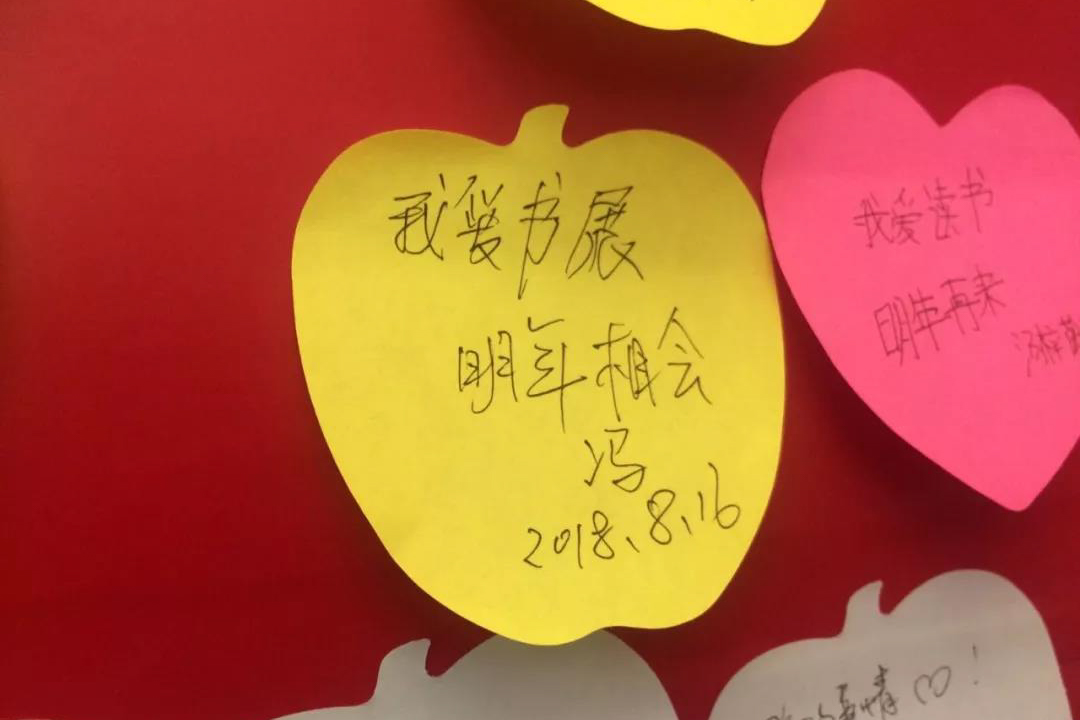 我爱书展
明年相会
冯
2018.8.16
我爱读书
明年再来
情♡!